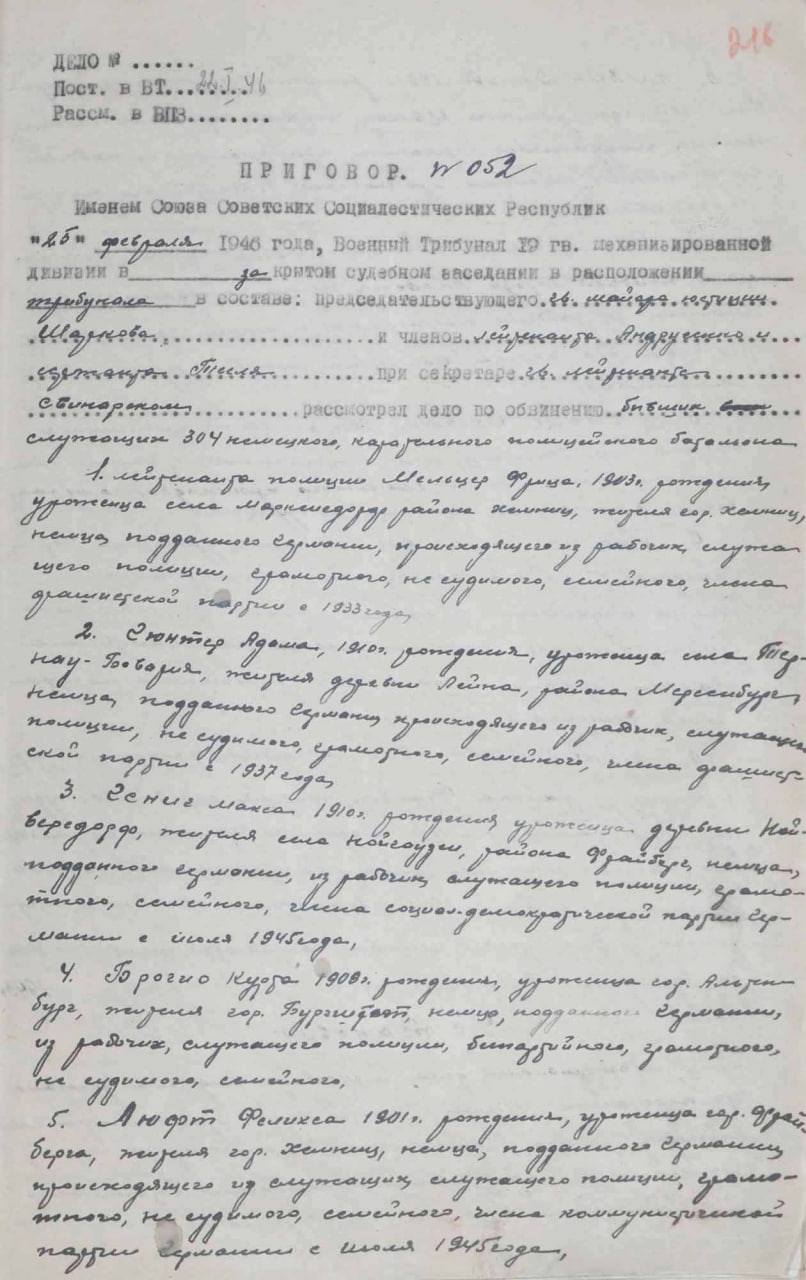 216
ДЕЛО № ......
Пост. в ВТ. 22.I.46
Рассм. в ВПЗ........
ПРИГОВОР. № 052
Именем Союза Советских Социалестических Республик
"25" февраля 1946 года, Военный Трибунал 19 гв. механизированной
дивизии в за крытом судебном заседании в расположении
трибунала в составе: председательствующего гв. майора юстиции
Шаркова и членов лейтенанта Андрусенко и
сержанта Теля при секретаре гв. лейтенанта
Свинарском рассмотрел дело по обвинению бывших
служащих 304 немецкого, карательного полицейского батальона
1. лейтенанта полиции Мельцер Фрица, 1903г. рождения,
уроженца села Маркерсдорф района Хемниц, жителя гор. Хемниц,
немца, подданного Германии, происходящего из рабочих, служа
щего полиции, грамотного, не судимого, семейного, члена
фашистской партии с 1933 года,
2. Гюнтер Адама, 1910г. рождения, уроженца села Тер-
нау-Бовария, жителя деревни Лейна, района Мерсебург,
немца, подданного Германии, происходящего из рабочих, служащего
полиции, не судимого, грамотного, семейного, члена фашист-
ской партии с 1937 года,
3. Гениг Макса 1910г. рождения уроженца деревни Ной-
вередорф, жителя села Нойгаузен, района Фрайберг, немца,
подданного Германии, из рабочих, служащего полиции, грамо-
тного, семейного, члена социал-демократической партии Гер-
мании с июля 1945 года,
4. Брогио Курта 1909г. рождения, уроженца гор. Альтен
бург, жителя гор. Бургштет, немца, подданного Германии,
из рабочих, служащего полиции, безпартийного, грамотного,
не судимого, семейного,
5. Люфт Феликса 1901г. рождения, уроженца гор. Фрай
берга, жителя гор. Хемниц, немца, подданного Германии,
происходящего из служащих, служащего полиции, грамо-
тного, не судимого, семейного, члена коммунистической
партии Германии с июля 1945 года,